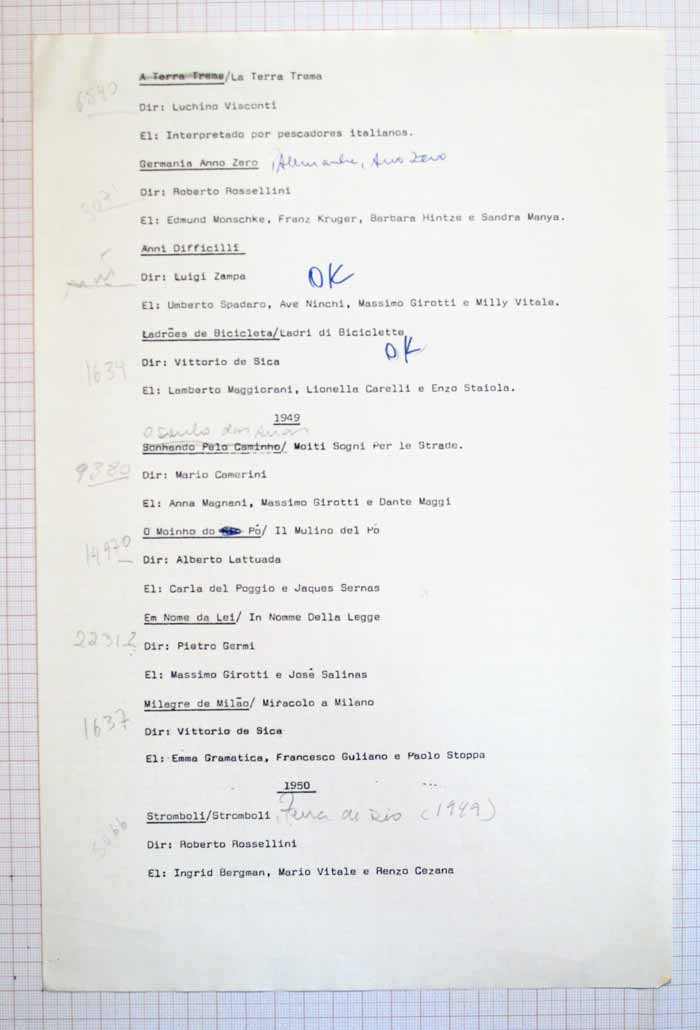 A Terra Trema/La Terra Trema
6540
Dir: Luchino Visconti
El: Interpretado por pescadores italianos.
Germania Anno Zero Alemanha, Ano Zero
Dir: Roberto Rossellini
El: Edmund Monschke, Franz Kruger, Barbara Hintze e Sandra Manya.
Anni Difficilli
Dir: Luigi Zampa OK
El: Umberto Spadaro, Ave Ninchi, Massimo Girotti e Milly Vitale.
Ladrões de Bicicleta/Ladri di Biciclette
OK
1634 Dir: Vittorio de Sica
El: Lamberto Maggiorani, Lionella Carelli e Enzo Staiola.
1949
Sonhando Pelo Caminho/ Moiti Sogni Per le Strade.
9380 Dir: Mario Camerini
El: Anna Magnani, Massimo Girotti e Dante Maggi
O Moinho do Pó/ Il Mulino del Pó
14970 Dir: Alberto Lattuada
El: Carla del Poggio e Jaques Sernas
Em Nome da Lei/ In Nomme Della Legge
22312 Dir: Pietro Germi
El: Massimo Girotti e José Salinas
Milagre de Milão/ Miracolo a Milano
1637 Dir: Vittorio de Sica
El: Emma Gramatica, Francesco Guliano e Paolo Stoppa
1950
Stromboli/Stromboli, Terra de Dio (1949)
Dir: Roberto Rossellini
El: Ingrid Bergman, Mario Vitale e Renzo Cezana